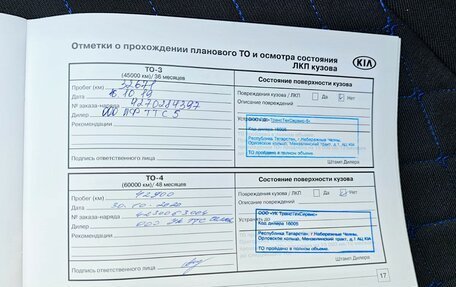 Отметки о прохождении планового ТО и осмотра состояния
ЛКП кузова
KIA
ТО-3
(45000 км)/ 36 месяцев
Состояние поверхности кузова
Пробег (км) 32671
Повреждения кузова / ЛКП Да Нет
Дата 10 19
Описание повреждений
№ заказа-наряда
Дилер ООО ТТС 5
Устранить до
ООО «ТрансТехСервис-5»
Код дилера 16005
Рекомендации
Республика Татарстан, г Набережные Челны,
Орловское кольцо, Мензелинский тракт, д.1 АЦ KIA
ТО пройдено в полном объеме.
Подпись ответственного лица
Штамп Дилера
ТО-4
(60000 км)/ 48 месяцев
Состояние поверхности кузова
Пробег (км) 42900
Повреждения кузова / ЛКП Да Нет
Дата 30.10.2020
Описание повреждений
№ заказа-наряда
Дилер ООО УК ТТС
Устранить до
ООО «УК ТрансТехСервис»
Код дилера 16005
Рекомендации
Республика Татарстан, г Набережные Челны,
Орловское кольцо, Мензелинский тракт, д.1 АЦ KIA
ТО пройдено в полном объеме.
Подпись ответственного лица
Штамп Дилера
17